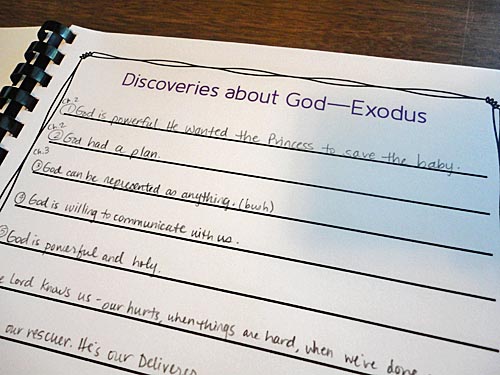 Discoveries about God—Exodus
ch.2
① God is powerful. He wanted the Princess to save the baby.
ch.2
② God had a plan.
ch.3
③ God can be represented as anything. (bush)
④ God is willing to communicate with us.
⑤ God is powerful and holy.
Lord knows us - our hurts, when things are hard, when we've done
our rescuer. He's our Deliverer